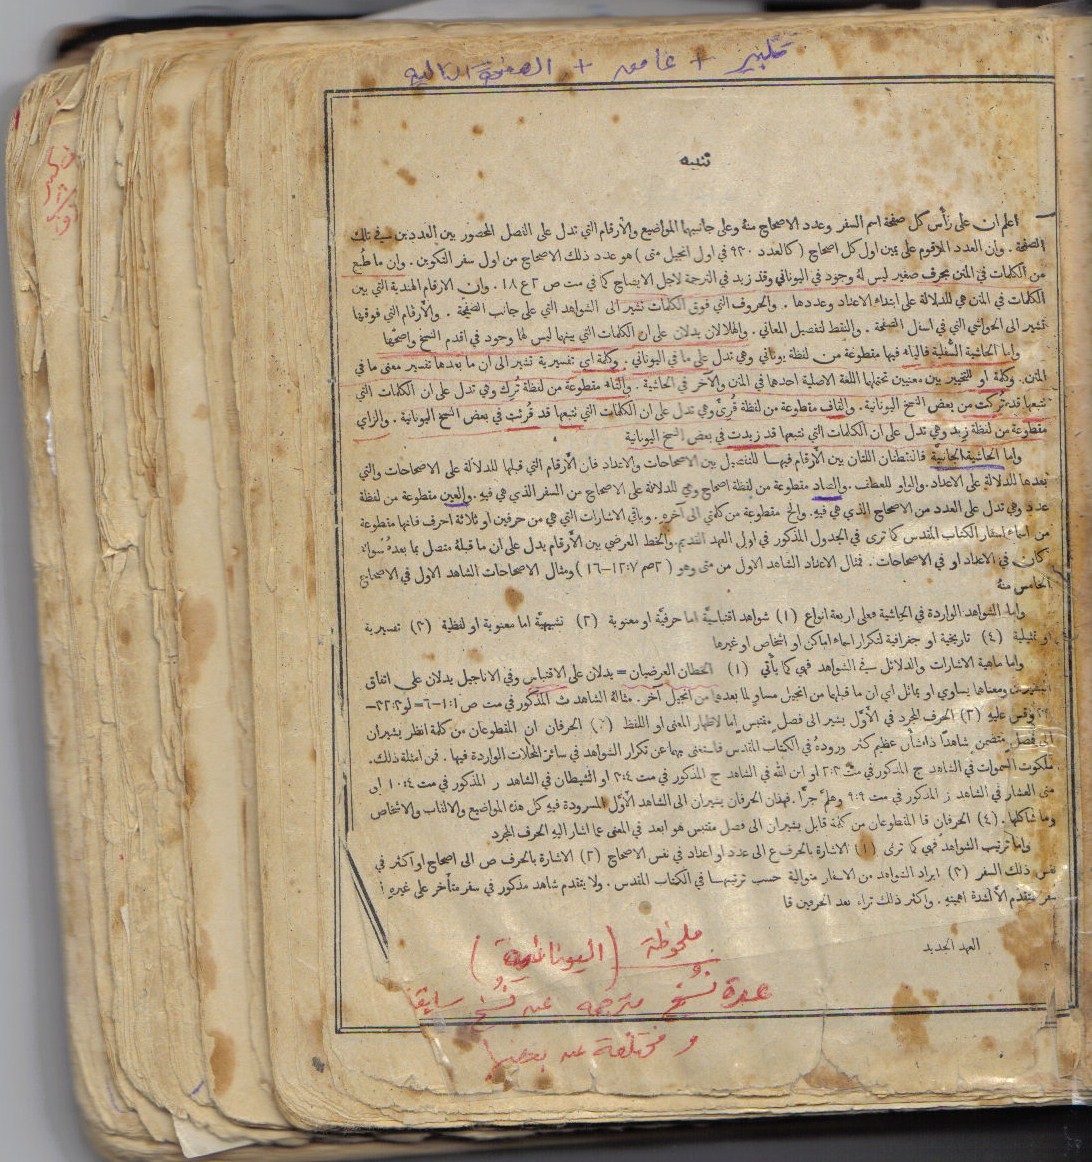 تكبير + غامق + الصفحة التالية
تنبيه
اعلم ان على رأس كل صفحة اسم السفر وعدد الاصحاح منهُ وعلى جانبيها المواضيع والأرقام التي تدل على الفصل المحصور بين العددين في تلك
الصفحة . وان العدد المرقوم على يمين اول كل اصحاح ( كالعدد ٩٣٠ في اول انجيل متى ) هو عدد ذلك الاصحاح من اول سفر التكوين . وان ما طبع
من الكلمات في المتن بحرف صغير ليس لهُ وجود في اليوناني وقد زيد في الترجمة لاجل الايضاح كما في مت ص ٢ ع ١٨ . وان الارقام الهندية التي بين
الكلمات في المتن هي للدلالة على ابتداء الاعداد وعددها . والحروف التي فوق الكلمات تشير الى الشواهد التي على جانب الصفحة . والأرقام التي فوقها
تشير الى الحواشي التي في اسفل الصفحة . والنقط لتفصيل المعاني . والهلالان يدلان على ان الكلمات التي بينهما ليس لها وجود في اقدم النسخ واصحّها
واما الحاشية السُّفلية فالياء فيها مقطوعة من لفظة يوناني وهي تدل على ما في اليوناني . وكلمة اي تفسيرية تشير الى ان ما بعدها تفسير معنى ما في
المتن . وكلمة او للتخيير بين معنيين تحتملهما اللغة الاصلية احدهما في المتن والآخر في الحاشية . والتاء مقطوعة من لفظة تُرِك وهي تدل على ان الكلمات التي
تتبعها قد تُركت من بعض النسخ اليونانية . والقاف مقطوعة من لفظة قُرِئ وهي تدل على ان الكلمات التي تتبعها قد قُرئت في بعض النسخ اليونانية . والزاي
مقطوعة من لفظة زيد وهي تدل على ان الكلمات التي تتبعها قد زيدت في بعض النسخ اليونانية
واما الحاشية الجانبيّة فالنقطتان اللتان بين الأرقام فيهما للتفصيل بين الاصحاحات والاعداد فان الأرقام التي قبلها للدلالة على الاصحاحات والتي
بعدها للدلالة على الاعداد . والواو للعطف . والصاد مقطوعة من لفظة اصحاح وهي للدلالة على الاصحاح من السفر الذي هي فيهِ . والعين مقطوعة من لفظة
عدد وهي تدل على العدد من الاصحاح الذي هي فيهِ . والخ مقطوعة من كلمتي الى آخرهِ . وباقي الاشارات التي هي من حرفين او ثلاثة احرف فانها مقطوعة
من اسماء اسفار الكتاب المقدس كما ترى في الجدول المذكور في اول العهد القديم . والخط العرضي بين الأرقام يدل على ان ما قبلهُ متصل بما بعدهُ سواء
كان في الاعداد او في الاصحاحات . فمثال الاعداد الشاهد الاول من متى وهو ( ٢صم ٧:١٢–١٦ ) ومثال الاصحاحات الشاهد الاول في الاصحاح
الخامس منهُ
واما الشواهد الواردة في الحاشية فعلى اربعة انواع (١) شواهد اقتباسيَّة اما حرفيَّة او معنوية (٢) تشبيهيَّة اما معنوية او لفظية (٣) تفسيرية
او تمثيلية (٤) تاريخية او جغرافية لتكرار اسماء اماكن او اشخاص او غيرها
واما ماهية الاشارات والدلائل في الشواهد فهي كما يأتي (١) الخطان العرضيان = يدلان على الاقتباس وفي الاناجيل يدلان على اتفاق
ومعناها يساوي او يماثل اي ان ما قبلها من انجيل مساوٍ لما بعدها من انجيل آخر . مثالهُ الشاهد ث المذكور في مت ص ١:١–٦=لو ٣:٢٣–
وقس عليهِ (٢) الحرف المجرد في الأوّل يشير الى فصل مقتبس إما لاظهار المعنى او اللفظ (٣) الحرفان ان المقطوعان من كلمة انظر يشيران
الى فصل متضمن شاهدًا ذا شأن عظيم كثر ورودهُ في الكتاب المقدس فاستغني بهما عن تكرار الشواهد في سائر المحلات الواردة فيها . فمن امثلة ذلك
ملكوت السموات في الشاهد ج المذكور في مت ٣:٢ او ابن الله في الشاهد ج المذكور في مت ٤:٣ او الشيطان في الشاهد ر المذكور في مت ٤:١٠ او
متى العشار في الشاهد ز المذكور في مت ٩:٩ وهلمَّ جرًّا . فهذان الحرفان يشيران الى الشاهد الأوّل المسرودة فيهِ كل هذه المواضيع والالقاب والاشخاص
وما شاكلها . (٤) الحرفان قا المقطوعان من كلمة قابل يشيران الى فصل مقتبس هو ابعد في المعنى عما اشار اليهِ الحرف المجرد
واما ترتيب الشواهد فهي كما ترى (١) الاشارة بالحرف ع الى عدد او اعداد في نفس الاصحاح (٢) الاشارة بالحرف ص الى اصحاح او اكثر في
نفس ذلك السفر (٣) ايراد الشواهد من الاسفار متوالية حسب ترتيبها في الكتاب المقدس . ولا يتقدم شاهد مذكور في سفر متأخر على غيرهِ
سفر متقدم الاّ لشدة اهميتهِ . واكثر ذلك تراهُ بعد الحرفين قا
العهد الجديد
ملحوظة (اليونانية)
عدة نُسخ مترجمه عن نُسخ سابقا
و مختلفة عن بعضها